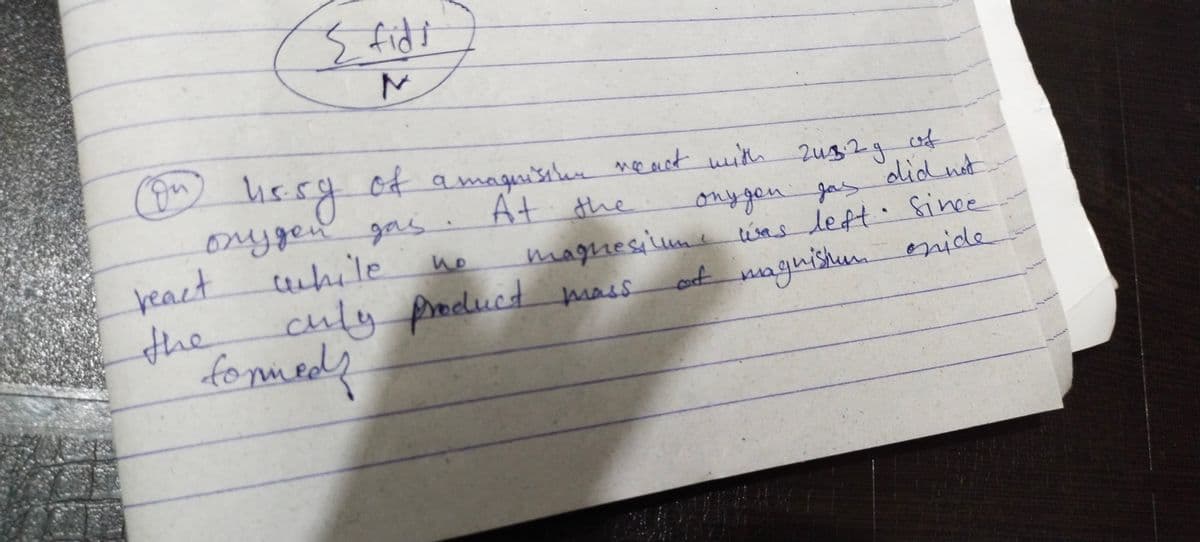 Σ fidi
N
Qn 45.5g of a magnisium react with 243.2g of
oxygen gas. At the oxygen gas did not
react while no magnesium was left. Since
the only product mass of magnishum oxide
formed?